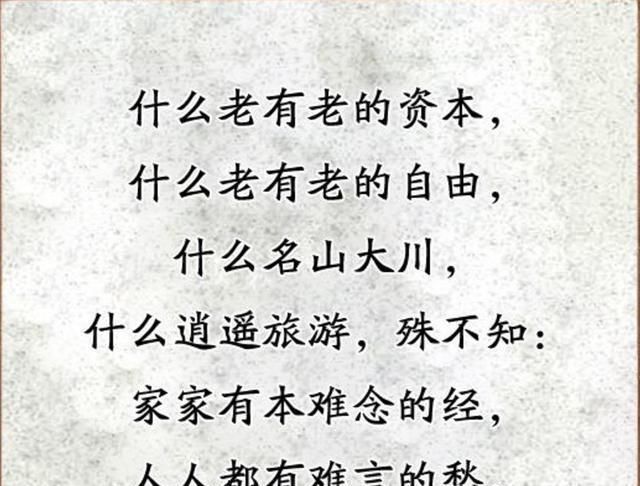 什么老有老的资本，
什么老有老的自由，
什么名山大川，
什么逍遥旅游，殊不知：
家家有本难念的经，
人人都有难言的愁，